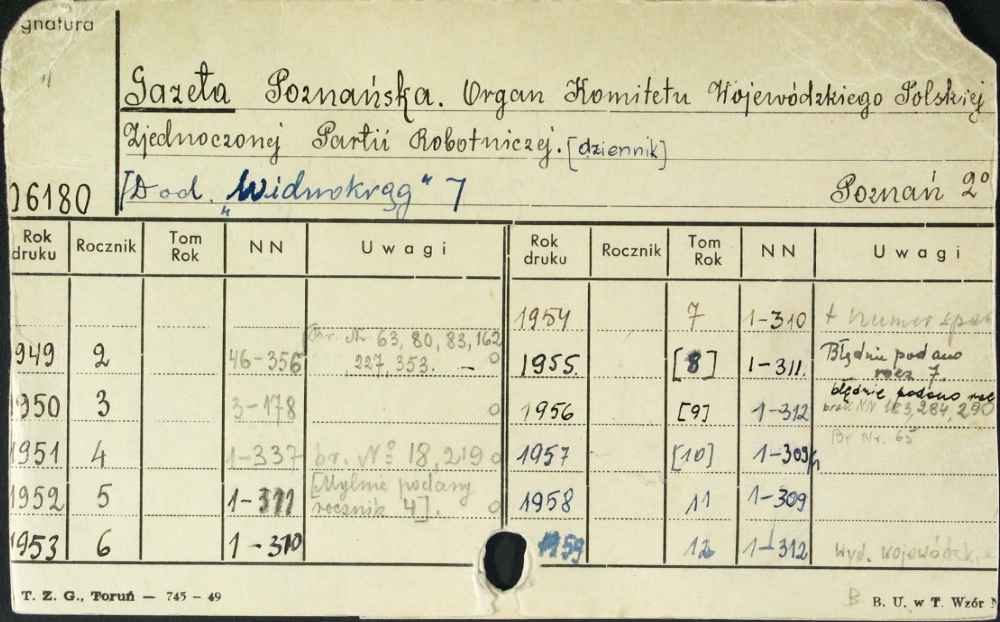 gnatura
Gazeta Poznańska. Organ Komitetu Wojewódzkiego Polskiej
Zjednoczonej Partii Robotniczej. [dziennik]
06180 [Dod. "Widnokrąg" 7 Poznań 2°
Rok druku Rocznik Tom Rok NN Uwagi Rok druku Rocznik Tom Rok NN Uwagi
1954 7 1-310 + numer
949 2 46-356 Br. Nr 63, 80, 83, 162 227, 353. — 0 1955. [8] 1-311. Błędnie podano rocz 7.
950 3 3-178 0 1956 [9] 1-312 błędnie podano brak NN 183, 284, 290
1951 4 1-337 br. No 18, 219 0 1957 [10] 1-309 Br Nr. 65
1952 5 1-311 [Mylnie podany rocznik 4]. 0 1958 11 1-309
1953 6 1-310 1959 12 1-312 wyd. wojewódzkie
T. Z. G., Toruń — 745 - 49 B B. U. w T. Wzór